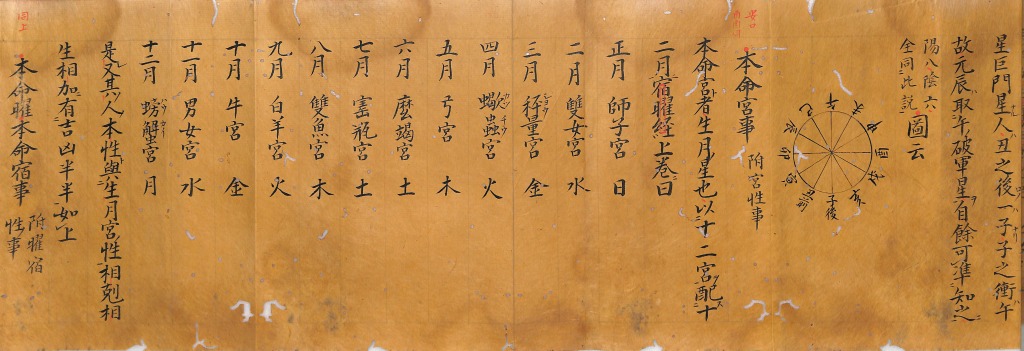 星巨門星人丑之後一子子之衝午
故元辰取午破軍星自餘可準知之
陽八陰六
全同此説
圖云
午
未
申
酉
戌
亥
子後
丑
寅
卯
辰
巳
本命宮事 附宮性事
本命宮者生月星也以十二宮配十
二月宿曜経上巻曰
正月 師子宮 日
二月 雙女宮 水
三月 秤量宮 金
四月 蝎蟲宮 火
五月 弓宮 木
六月 麼竭宮 土
七月 寳瓶宮 土
八月 雙魚宮 木
九月 白羊宮 火
十月 牛宮 金
十一月 男女宮 水
十二月 螃蟹宮 月
是又其人本性與生月宮性相剋相
生相加有吉凶半半如上
本命曜本命宿事 附曜宿性事
同上